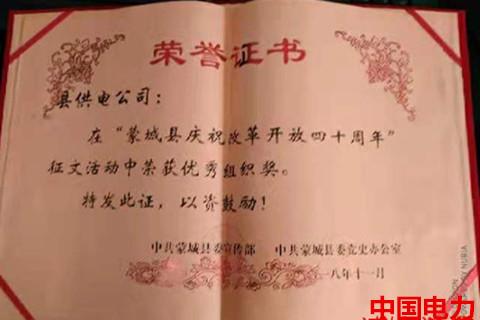 荣誉证书
县供电公司：
在“蒙城县庆祝改革开放四十周年”
征文活动中荣获优秀组织奖。
特发此证，以资鼓励！
中共蒙城县委宣传部 中共蒙城县委党史办公室
一八年十一月
中国电力